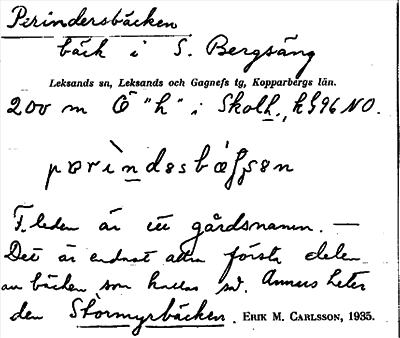 Perindersbäcken
bäck i S. Bergsäng
Leksands sn, Leksands och Gagnefs tg, Kopparbergs län.
200 m Ö "h" i Skolh., kG96 NO.
F.leden är ett gårdsnamn. —
Det är endast den första delen
av bäcken som kallas så. Annars heter
den Stormyrbäcken. ERIK M. CARLSSON, 1935.